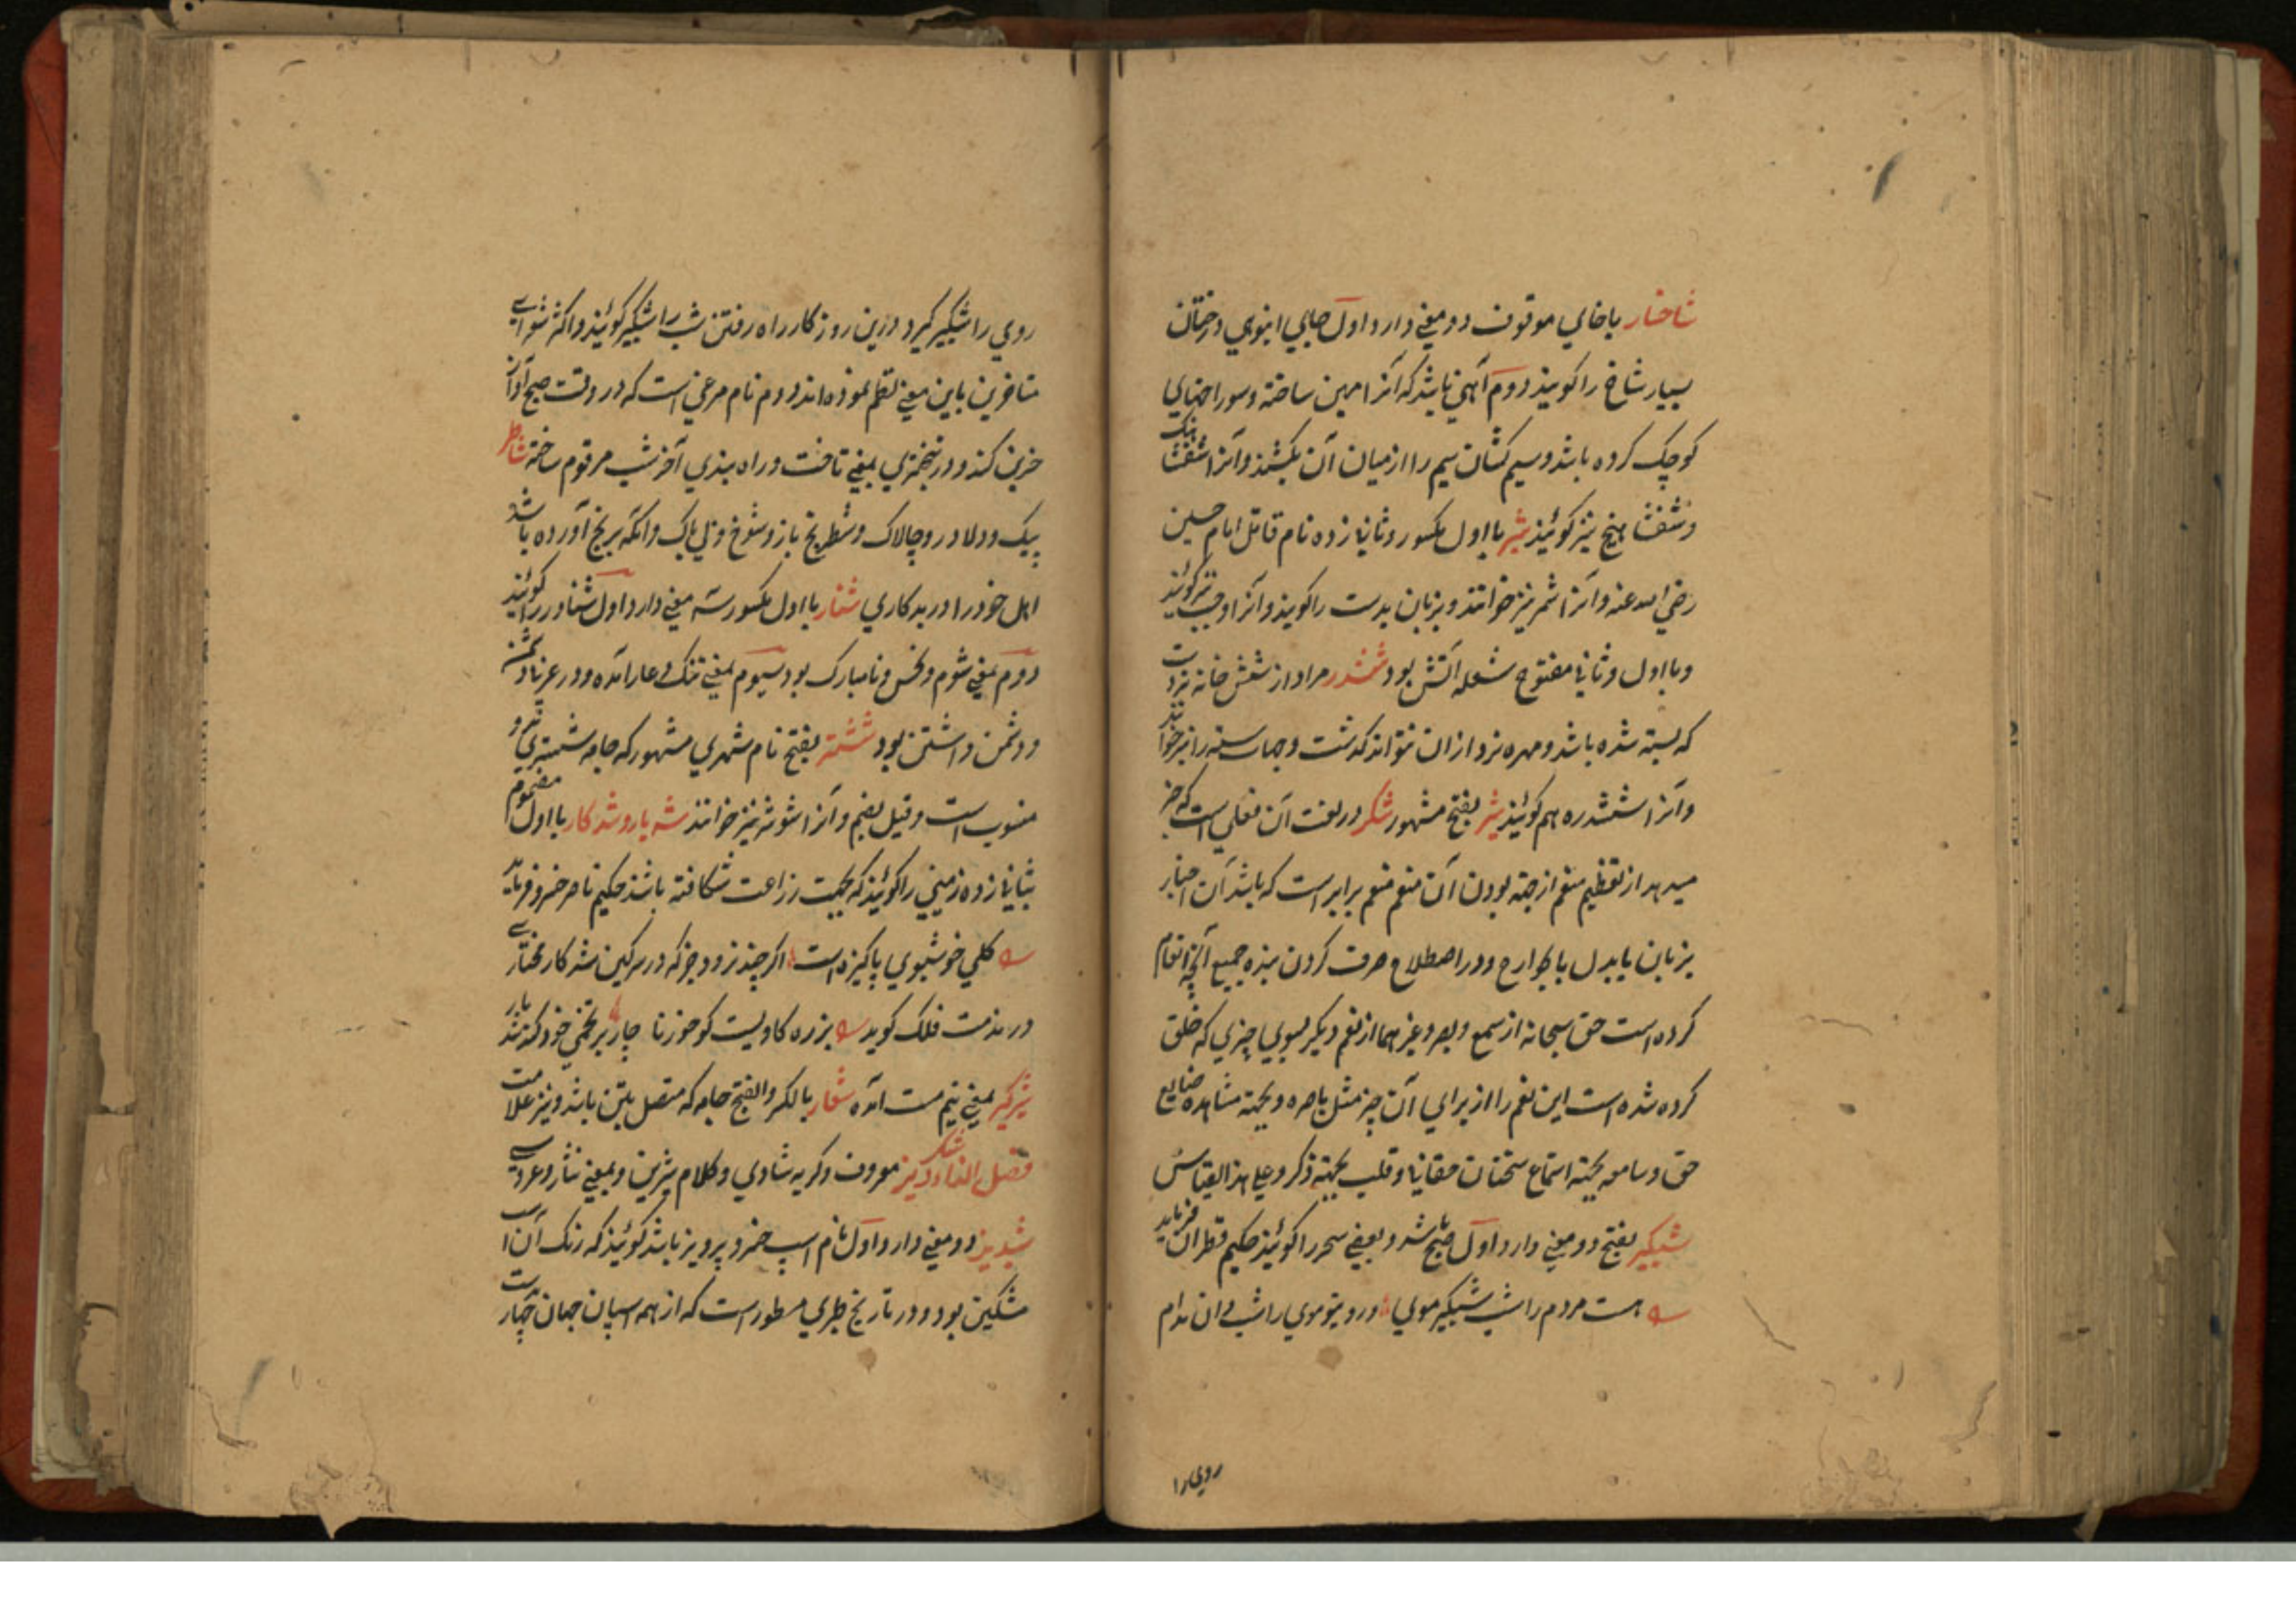 شاخسار باخاي موقوف دو معني دارد اول جايي انبوي درختان
بسيار شاخ را كويند دوم آهني باشد كه آنرا پهن ساخته و سوراخهاي
كوچك كرده باشد و سيم كشان سيم را از ميان آن بكشند و آنرا شفشاهنك
و شفشاهنج نيز كوئيند شمر با اول مكسور و ثاني زده نام قاتل امام حسين
رضي الله عنه و آنرا شمر نيز خوانند و بزبان بدست را كويند و آنرا وجب نيز كوئيند
و با اول و ثاني مفتوح شعله آتش بود ششدر مراد از شش خانه نردست
كه بسته شده باشد و مهره نرد از ان نتواند كذشت و جهات سته را نيز خوانند
و آنرا ششدره هم كوئيند شر بفتح مشهور شكر در لغت آن فعلي است كه خبر
ميدهد از تعظيم منعم از جهته بودن آن منعم منعم برابر است كه باشد آن اخبار
بزبان يا بدل يا بجوارح و در اصطلاح صرف كردن بنده جميع آنچه انعام
كرده است حق سبحانه از سمع و بصر و غيرهما از نعم ديكر بسوي چيزي كه خلق
كرده شده است اين نعم را از براي آن چيز مثل باصره و بجهته مشاهده صنايع
حق و سامعه بجهته استماع سخنان حقاني و قلب بجهته ذكر و علي هذا القياس
شبكير بفتح دو معني دارد اول صبح باشد و بعضي سحر را كوئيند حكيم قطران فرمايد
هست مردم را شب شبكير موي در و نيو موي را شب دان مدام
روي را
روي را شبكير كيرد درين روزكار راه رفتن شب را شبكير كوئيند و اكثر شعراي
متاخرين باين معني نظم نموده اند دوم نام مرغي است كه در وقت صبح آواز
حزين كند و در پنجهتري بمعني تاخت و راه بندي آخر شب مرقوم ساخته شاطر
پيك و دلاور و چالاك و شطرنج باز و شوخ و بي باك و انكه برنج آورده باشد
اهل خود را در بدكاري شنار با اول مكسور سه معني دارد اول شناور را كوئيند
دوم بمعني شوم و نحس و نامبارك بود سيوم بمعني ننك و عار آمده و در عربي دشمن
و دشمن داشتن بود ششتر بفتح نام شهري مشهور كه جامه ششتري بدو
منسوب است و قيل بضم و آنرا شوشتر نيز خوانند شديار و شدكار با اول مضموم
بثاني زده زميني را كوئيند كه بجهت زراعت شكافته باشند حكيم ناصر خسرو فرمايد
كلي خوشبوي پاكيزه است اكرچند نرويد جز كه در سركين شدكار مختاري
در مذمت فلك كويد بزره كاويست كو جوزنا چار بر تخمي خود كه نند
شيركير بمعني نيم مست آمده شعار بالكسر و الفتح جامه كه متصل بتن باشد و نيز علامت
فصل الزاء شكر ريز معروف و كريه شادي و كلام شيرين و بمعني نثار و عروسي
شبديز دو معني دارد اول نام اسپ خسرو پرويز باشد كوئيند كه رنك آن اسپ
مشكين بود و در تاريخ طبري مسطور است كه از همه اسپان جهان چهار دست